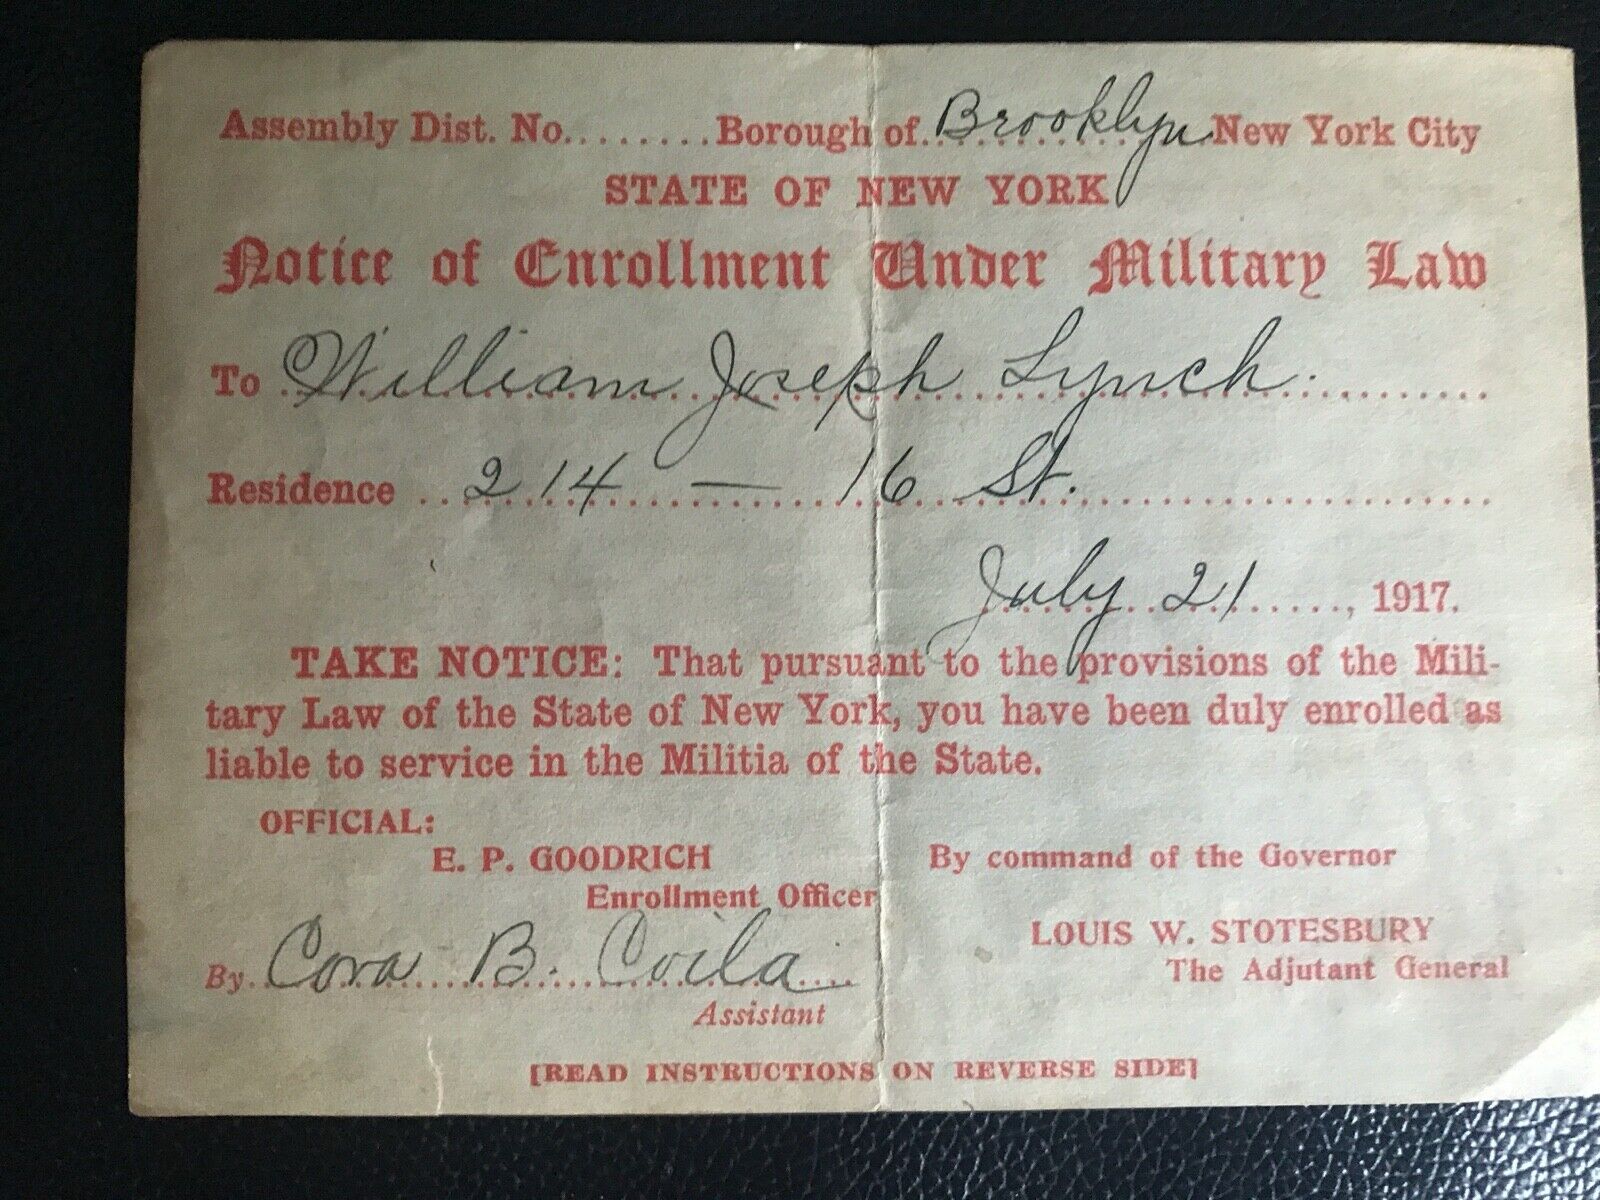 Assembly Dist. No. ........ Borough of Brooklyn New York City
STATE OF NEW YORK
Notice of Enrollment Under Military Law
To William Joseph Lynch
Residence 214 — 16 St.
July 21, 1917.
TAKE NOTICE: That pursuant to the provisions of the Mili-
tary Law of the State of New York, you have been duly enrolled as
liable to service in the Militia of the State.
OFFICIAL:
E. P. GOODRICH
Enrollment Officer
By Cora B. Coila
Assistant
By command of the Governor
LOUIS W. STOTESBURY
The Adjutant General
[READ INSTRUCTIONS ON REVERSE SIDE]